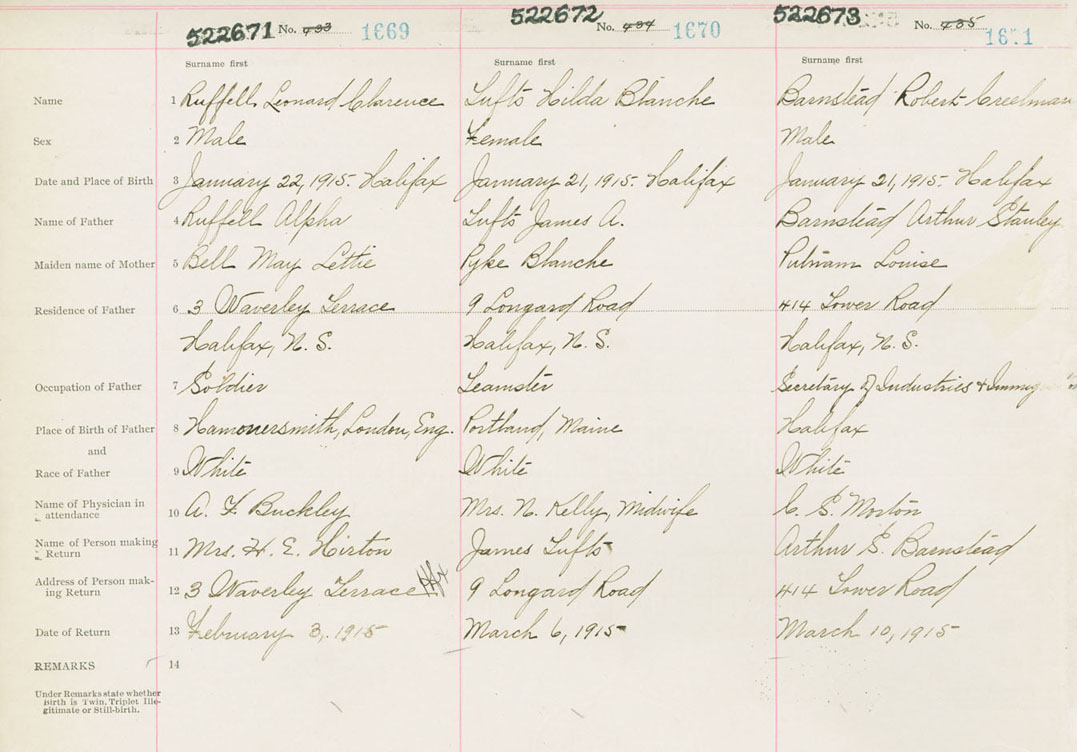 522671 No. 433 1669 522672 No. 434 1670 522673 No. 435 1671
Surname first Surname first Surname first
Name 1 Ruffell Leonard Clarence Tufts Hilda Blanche Barnstead Robert Creelman
Sex 2 Male Female Male
Date and Place of Birth 3 January 22, 1915. Halifax January 21, 1915. Halifax January 21, 1915. Halifax
Name of Father 4 Ruffell Alpha Tufts James A. Barnstead Arthur Stanley
Maiden name of Mother 5 Bell May Lettie Pyke Blanche Putnam Louise
Residence of Father 6 3 Waverley Terrace 9 Longard Road 414 Tower Road
Halifax, N. S. Halifax, N. S. Halifax, N. S.
Occupation of Father 7 Soldier Teamster Secretary of Industries & Immig
Place of Birth of Father 8 Hammersmith, London, Eng. Portland, Maine Halifax
and
Race of Father 9 White White White
Name of Physician in
attendance 10 A. F. Buckley Mrs. N. Kelly, Midwife C. S. Morton
Name of Person making
Return 11 Mrs. H. E. Hirton James Tufts Arthur S. Barnstead
Address of Person mak-
ing Return 12 3 Waverley Terrace Hfx 9 Longard Road 414 Tower Road
Date of Return 13 February 3, 1915 March 6, 1915 March 10, 1915
REMARKS 14
Under Remarks state whether
Birth is Twin, Triplet Ille-
gitimate or Still-birth.